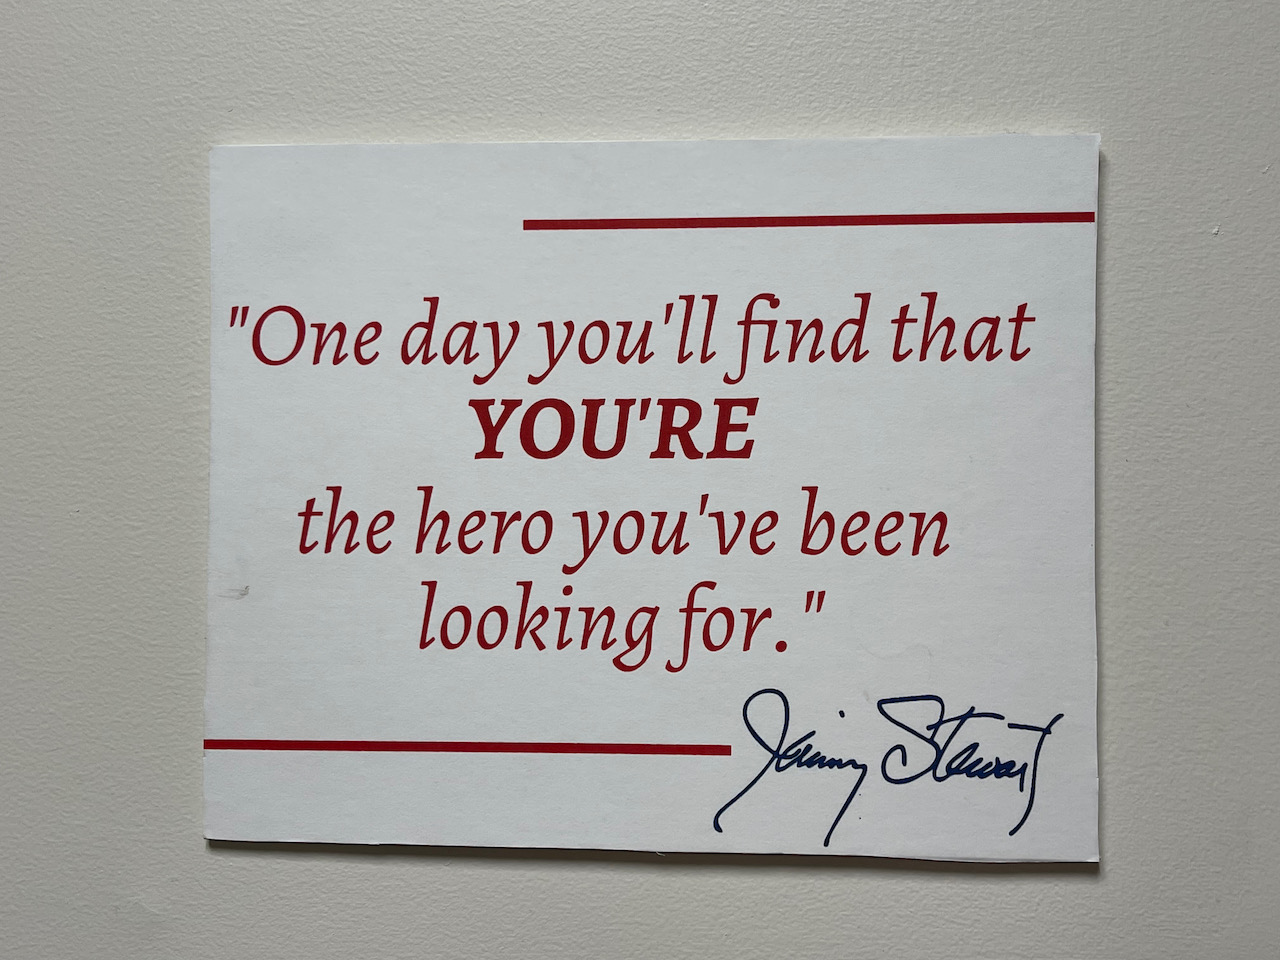 "One day you'll find that
YOU'RE
the hero you've been
looking for."
Jimmy Stewart